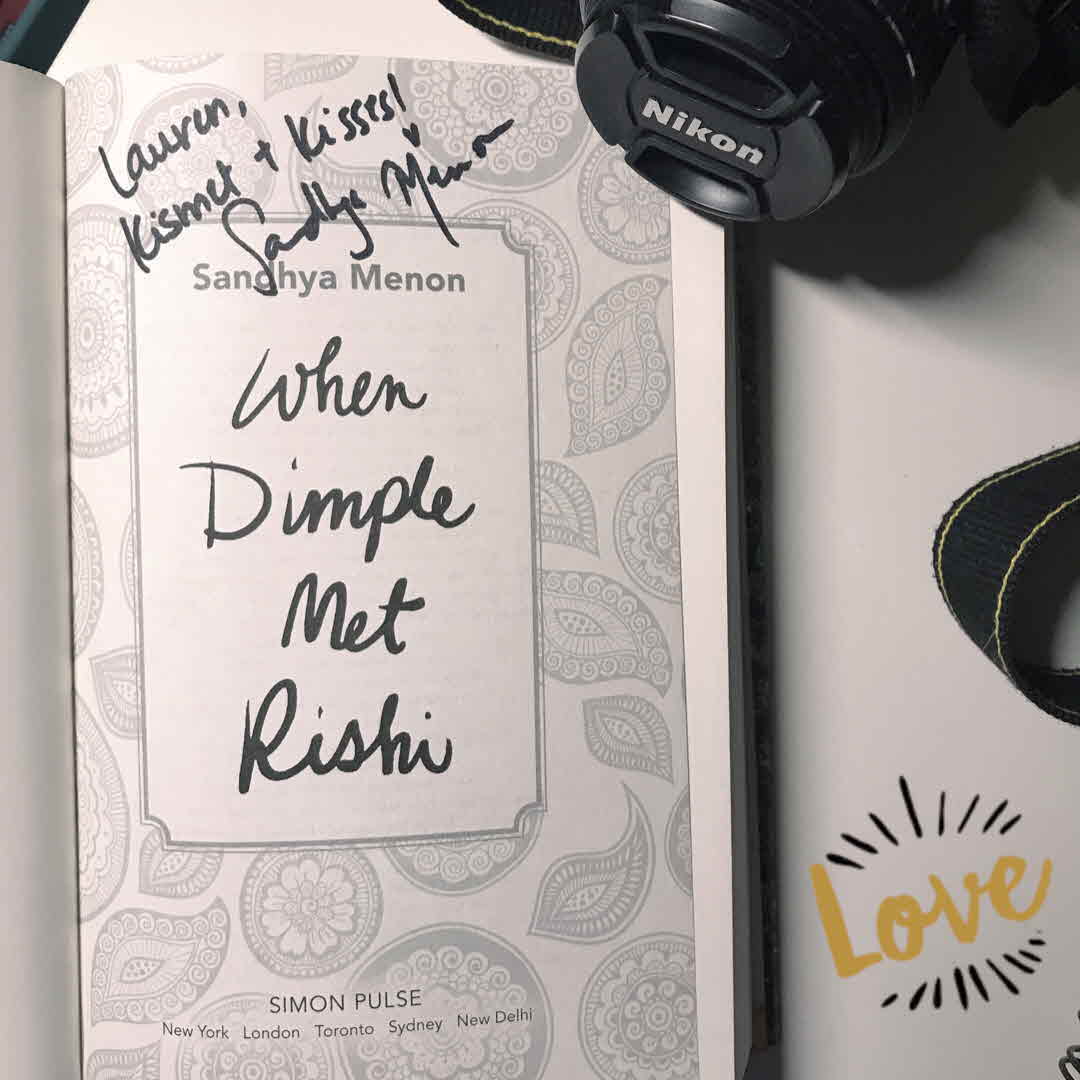 Lauren,
Kismet + Kisses!
Sandhya Menon
Sandhya Menon
When
Dimple
Met
Rishi
SIMON PULSE
New York London Toronto Sydney New Delhi
Nikon
Love